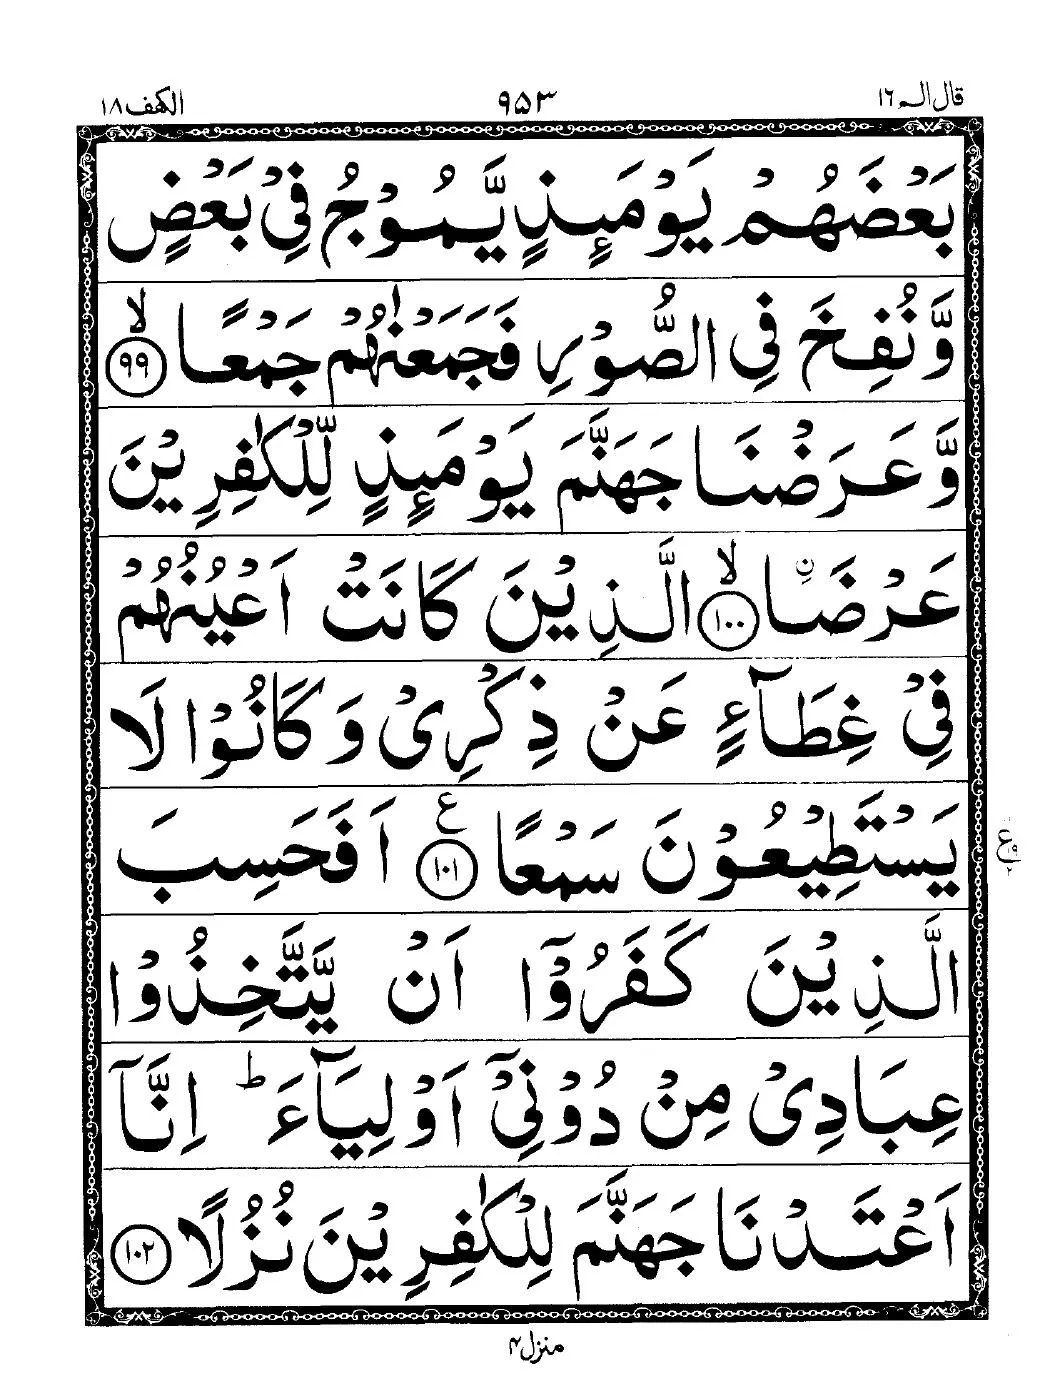 قال الم ١٦
٩٥٣
الكهف ١٨
بَعْضَهُمْ يَوْمَئِذٍ يَّمُوْجُ فِيْ بَعْضٍ
وَّنُفِخَ فِي الصُّوْرِ فَجَمَعْنٰهُمْ جَمْعًا ۙ﴿٩٩﴾
وَّعَرَضْنَا جَهَنَّمَ يَوْمَئِذٍ لِّلْكٰفِرِيْنَ
عَرْضَاۨ ۙ﴿١٠٠﴾ الَّذِيْنَ كَانَتْ اَعْيُنُهُمْ
فِيْ غِطَآءٍ عَنْ ذِكْرِيْ وَكَانُوْا لَا
يَسْتَطِيْعُوْنَ سَمْعًا ﴿١٠١﴾ع اَفَحَسِبَ
ع ١٩ ٢
الَّذِيْنَ كَفَرُوْٓا اَنْ يَّتَّخِذُوْا
عِبَادِيْ مِنْ دُوْنِيْٓ اَوْلِيَآءَ ؕ اِنَّآ
اَعْتَدْنَا جَهَنَّمَ لِلْكٰفِرِيْنَ نُزُلًا ﴿١٠٢﴾
منزل ٤